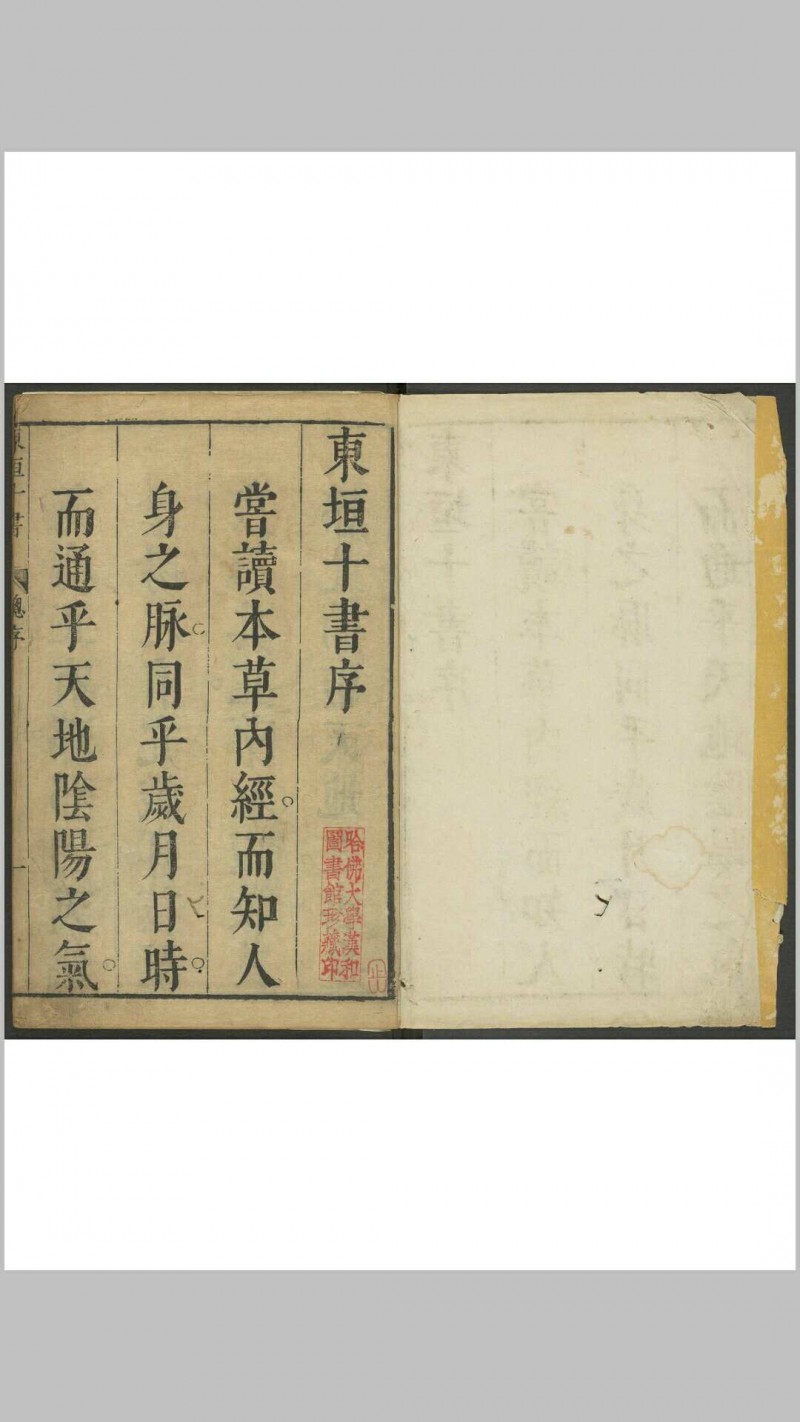 東垣十書序
嘗讀本草內經而知人
身之脉同乎歲月日時
而通乎天地陰陽之氣
東垣十書
總序
一
哈佛大學漢和
圖書館珍藏印
止